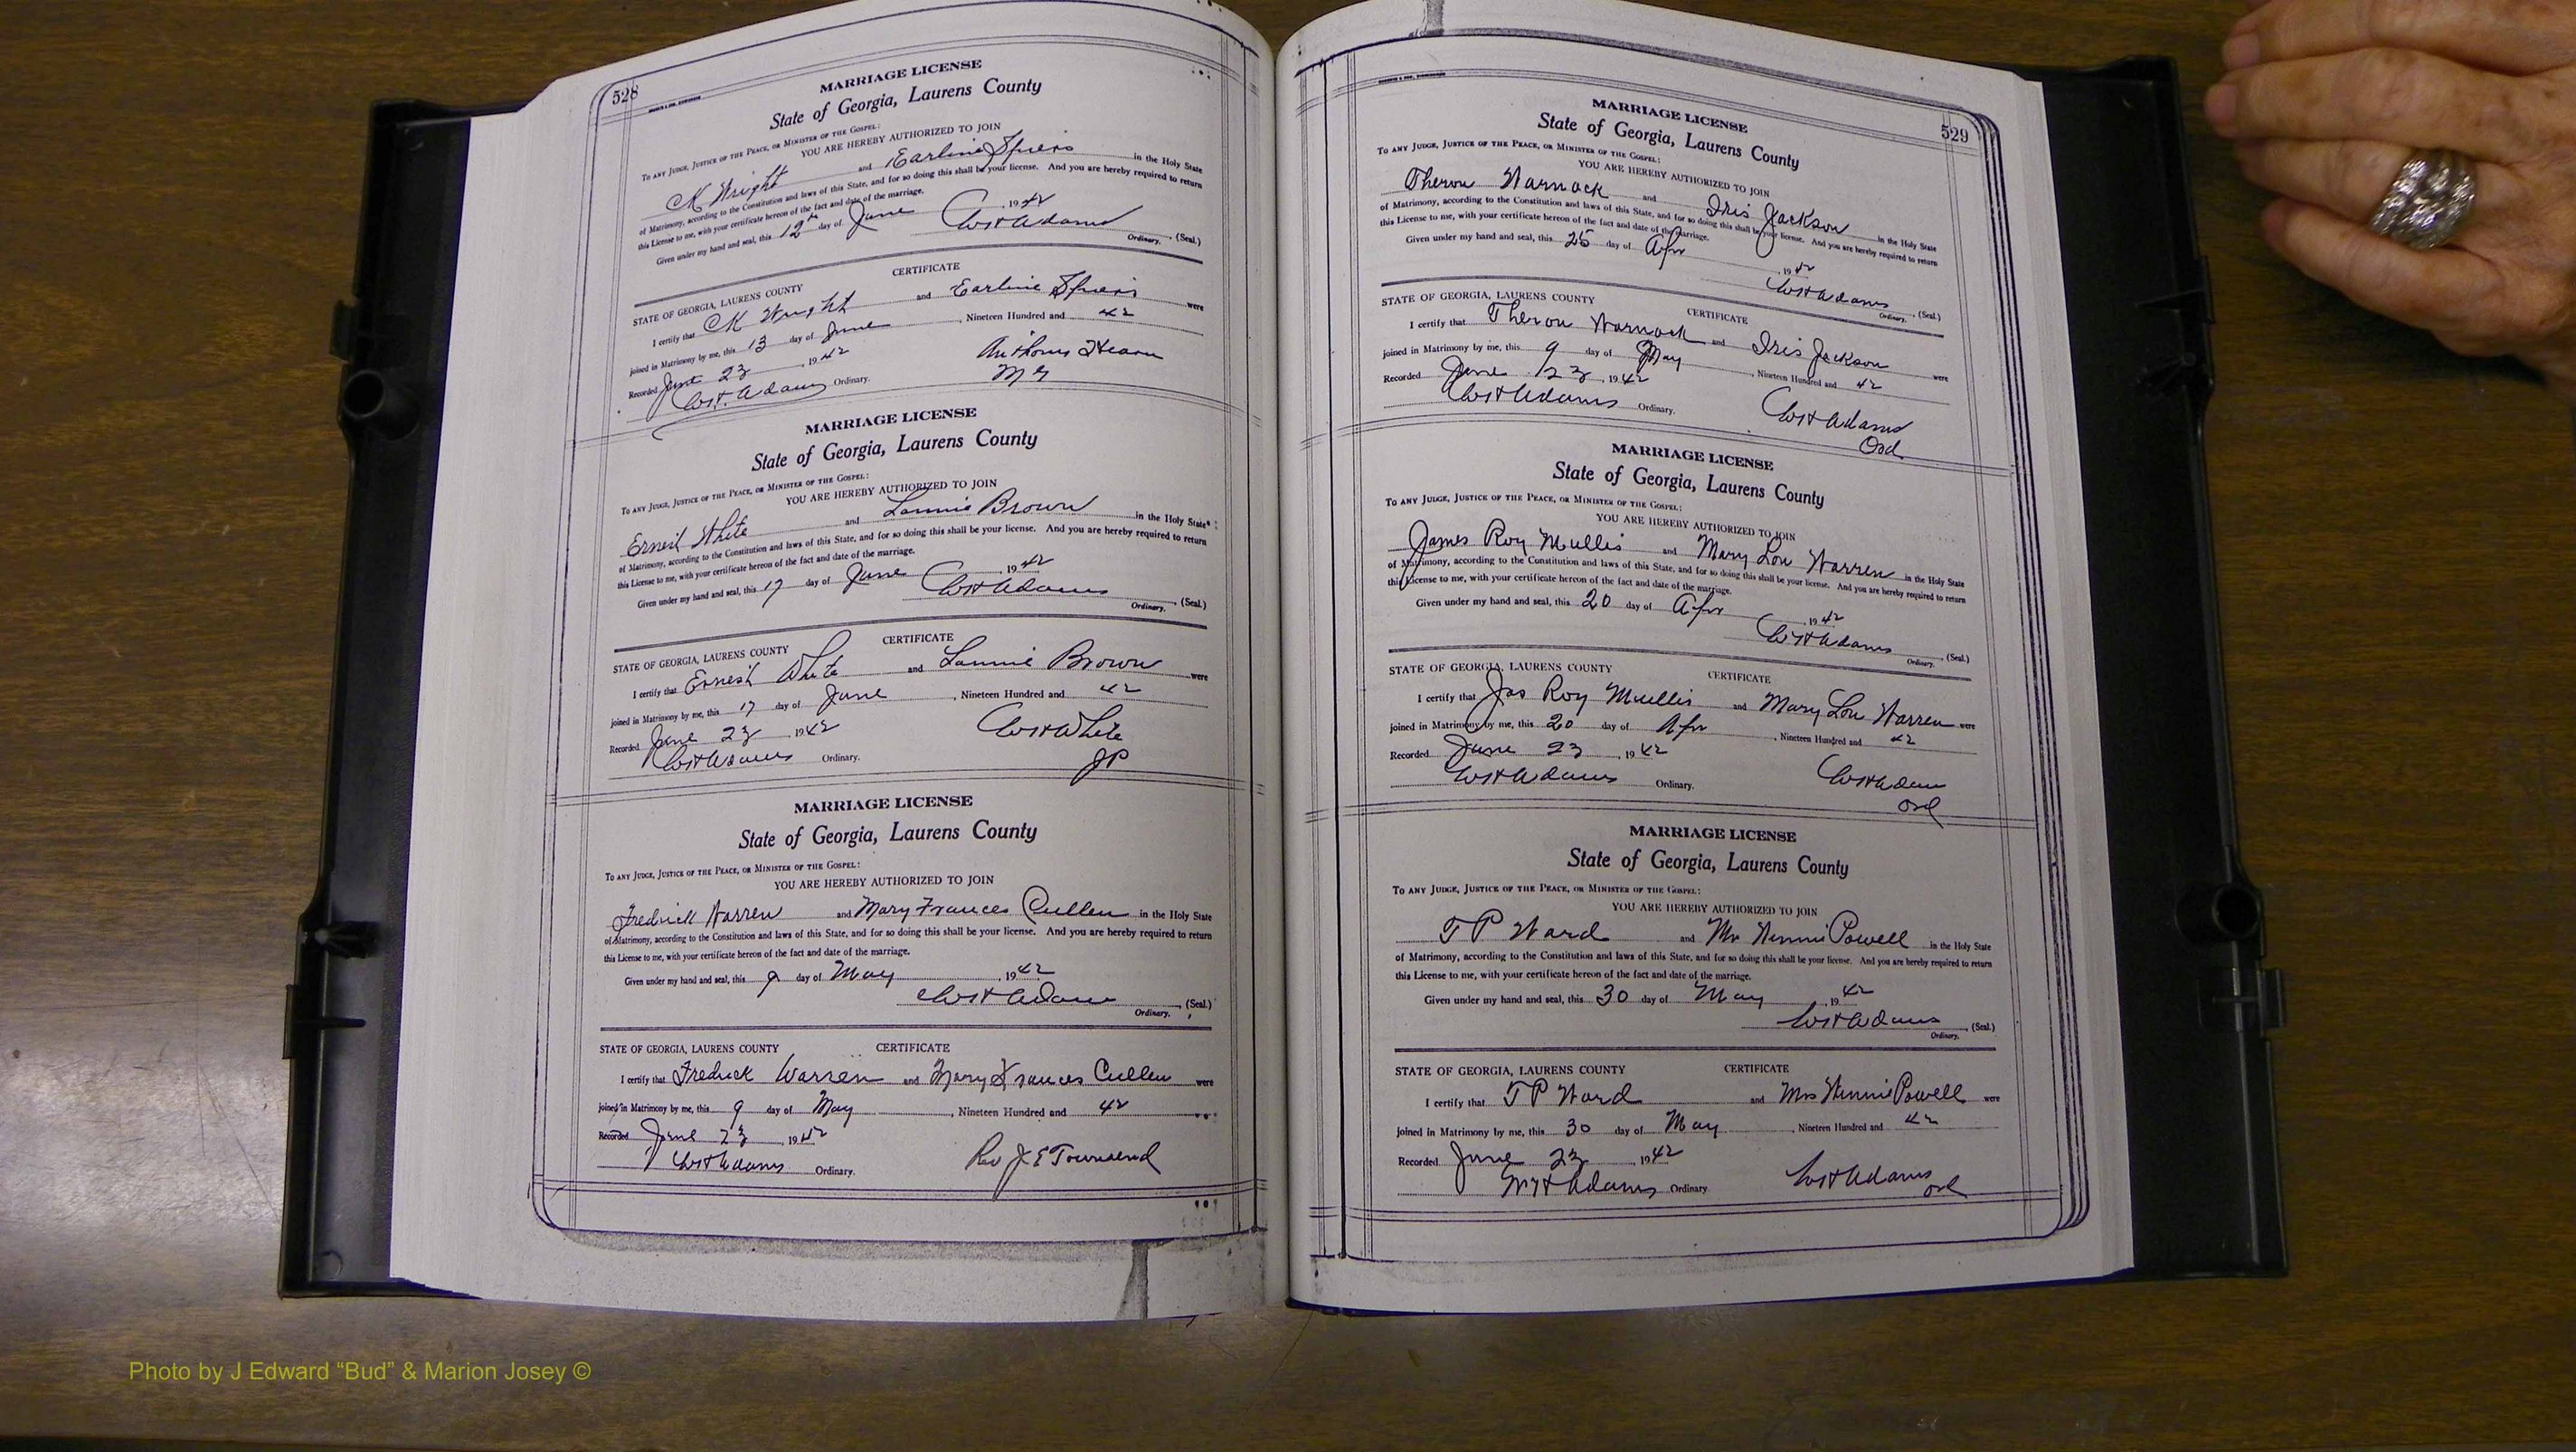 528
MARRIAGE LICENSE
State of Georgia, Laurens County
To any Judge, Justice of the Peace, or Minister of the Gospel:
YOU ARE HEREBY AUTHORIZED TO JOIN
CK Wright and Earline Spiers in the Holy State
of Matrimony, according to the Constitution and laws of this State, and for so doing this shall be your license. And you are hereby required to return
this License to me, with your certificate hereon of the fact and date of the marriage.
Given under my hand and seal, this 12th day of June, 1942
Wm H Adams, (Seal.)
Ordinary.
CERTIFICATE
STATE OF GEORGIA, LAURENS COUNTY
I certify that CK Wright and Earline Spiers were
joined in Matrimony by me, this 13 day of June, Nineteen Hundred and 42
Recorded June 23, 1942
Anthony Hearn
Wm H. Adams Ordinary.
M G
MARRIAGE LICENSE
State of Georgia, Laurens County
To any Judge, Justice of the Peace, or Minister of the Gospel:
YOU ARE HEREBY AUTHORIZED TO JOIN
Ernest White and Lannie Brown in the Holy State
of Matrimony, according to the Constitution and laws of this State, and for so doing this shall be your license. And you are hereby required to return
this License to me, with your certificate hereon of the fact and date of the marriage.
Given under my hand and seal, this 17 day of June, 1942
Wm H Adams, (Seal.)
Ordinary.
CERTIFICATE
STATE OF GEORGIA, LAURENS COUNTY
I certify that Ernest White and Lannie Brown were
joined in Matrimony by me, this 17 day of June, Nineteen Hundred and 42
Recorded June 23, 1942
Wm H White
Wm H Adams Ordinary.
JP
MARRIAGE LICENSE
State of Georgia, Laurens County
To any Judge, Justice of the Peace, or Minister of the Gospel:
YOU ARE HEREBY AUTHORIZED TO JOIN
Fredrick Warren and Mary Frances Cullen in the Holy State
of Matrimony, according to the Constitution and laws of this State, and for so doing this shall be your license. And you are hereby required to return
this License to me, with your certificate hereon of the fact and date of the marriage.
Given under my hand and seal, this 9 day of May, 1942
Wm H Adams, (Seal.)
Ordinary.
STATE OF GEORGIA, LAURENS COUNTY CERTIFICATE
I certify that Fredrick Warren and Mary Frances Cullen were
joined in Matrimony by me, this 9 day of May, Nineteen Hundred and 42
Recorded June 23, 1942
Wm H Adams Ordinary.
Rev J E Townsend
529
MARRIAGE LICENSE
State of Georgia, Laurens County
To any Judge, Justice of the Peace, or Minister of the Gospel:
YOU ARE HEREBY AUTHORIZED TO JOIN
Theron Warnock and Iris Jackson in the Holy State
of Matrimony, according to the Constitution and laws of this State, and for so doing this shall be your license. And you are hereby required to return
this License to me, with your certificate hereon of the fact and date of the marriage.
Given under my hand and seal, this 25 day of Apr, 1942
Wm H Adams, (Seal.)
Ordinary.
STATE OF GEORGIA, LAURENS COUNTY CERTIFICATE
I certify that Theron Warnock and Iris Jackson were
joined in Matrimony by me, this 9 day of May, Nineteen Hundred and 42
Recorded June 23, 1942
Wm H Adams Ordinary.
Wm H Adams
Ord
MARRIAGE LICENSE
State of Georgia, Laurens County
To any Judge, Justice of the Peace, or Minister of the Gospel:
YOU ARE HEREBY AUTHORIZED TO JOIN
James Roy Mullis and Mary Lou Warren in the Holy State
of Matrimony, according to the Constitution and laws of this State, and for so doing this shall be your license. And you are hereby required to return
this License to me, with your certificate hereon of the fact and date of the marriage.
Given under my hand and seal, this 20 day of Apr, 1942
Wm H Adams, (Seal.)
Ordinary.
STATE OF GEORGIA, LAURENS COUNTY CERTIFICATE
I certify that Jas Roy Muellis and Mary Lou Warren were
joined in Matrimony by me, this 20 day of Apr, Nineteen Hundred and 42
Recorded June 23, 1942
Wm H Adams Ordinary.
Wm H Adams
Ord
MARRIAGE LICENSE
State of Georgia, Laurens County
To any Judge, Justice of the Peace, or Minister of the Gospel:
YOU ARE HEREBY AUTHORIZED TO JOIN
T P Ward and Mrs Winnie Powell in the Holy State
of Matrimony, according to the Constitution and laws of this State, and for so doing this shall be your license. And you are hereby required to return
this License to me, with your certificate hereon of the fact and date of the marriage.
Given under my hand and seal, this 30 day of May, 1942
Wm H Adams, (Seal.)
Ordinary.
STATE OF GEORGIA, LAURENS COUNTY CERTIFICATE
I certify that T P Ward and Mrs Winnie Powell were
joined in Matrimony by me, this 30 day of May, Nineteen Hundred and 42
Recorded June 23, 1942
Wm H Adams Ordinary
Wm H Adams
Ord
Photo by J Edward “Bud” & Marion Josey ©